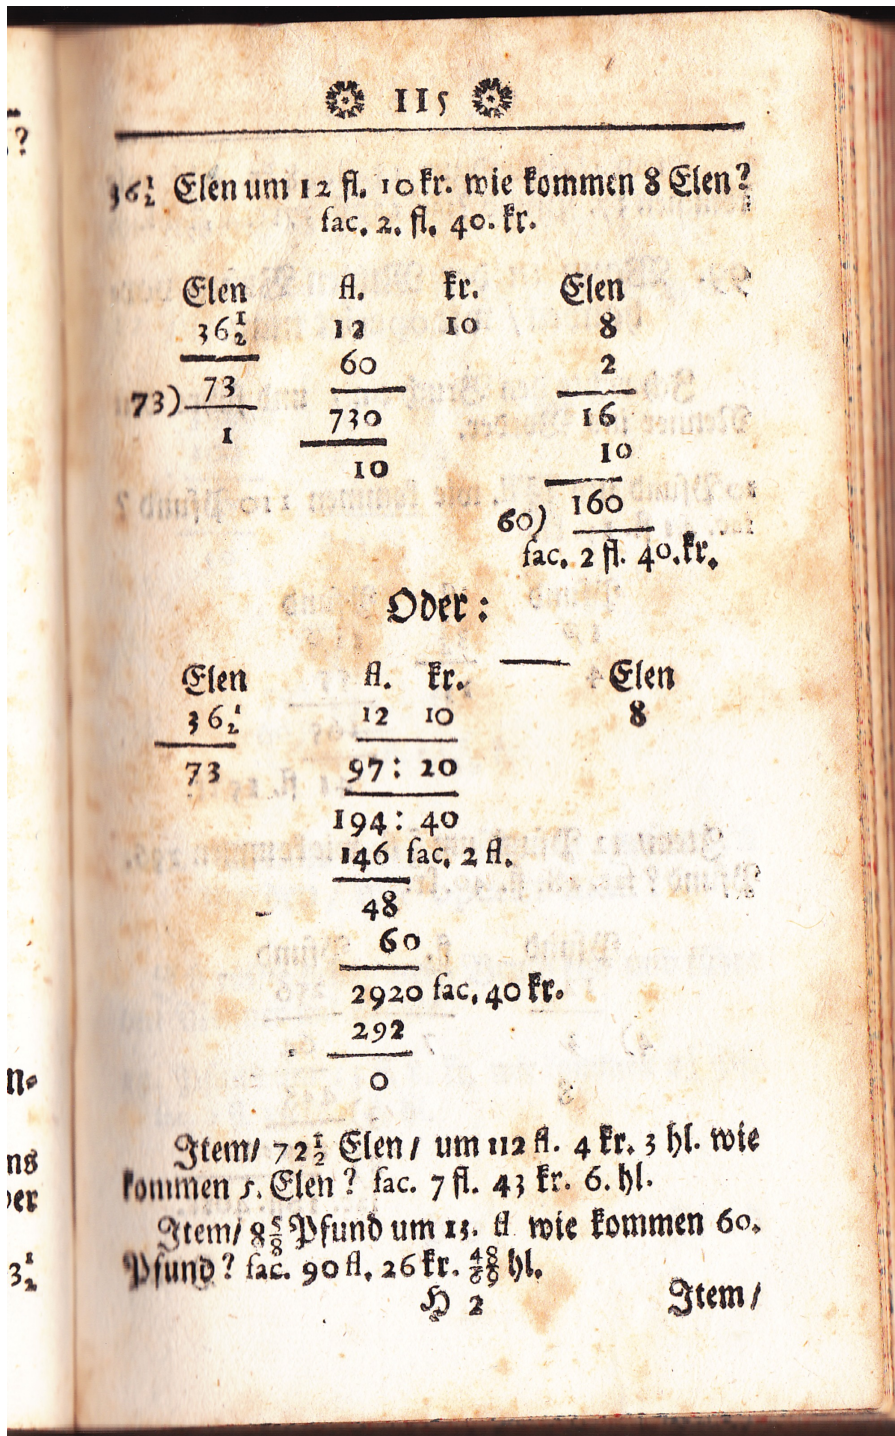 115
36½ Elen um 12 fl. 10 kr. wie kommen 8 Elen?
fac. 2. fl. 40. kr.
Elen fl. kr. Elen
36½ 12 10 8
60 2
73) 73 730 16
1 10 10
60) 160
fac. 2 fl. 40. kr.
Oder:
Elen fl. kr. — Elen
36½ 12 10 8
73 97: 20
194: 40
146 fac. 2 fl.
48
60
2920 fac. 40 kr.
292
0
Item/ 72½ Elen/ um 112 fl. 4 kr. 3 hl. wie
kommen 5. Elen? fac. 7 fl. 43 kr. 6. hl.
Item/ 8⅝ Pfund um 13. fl wie kommen 60.
Pfund? fac. 90 fl. 26 kr. 48/69 hl.
H 2 Item/